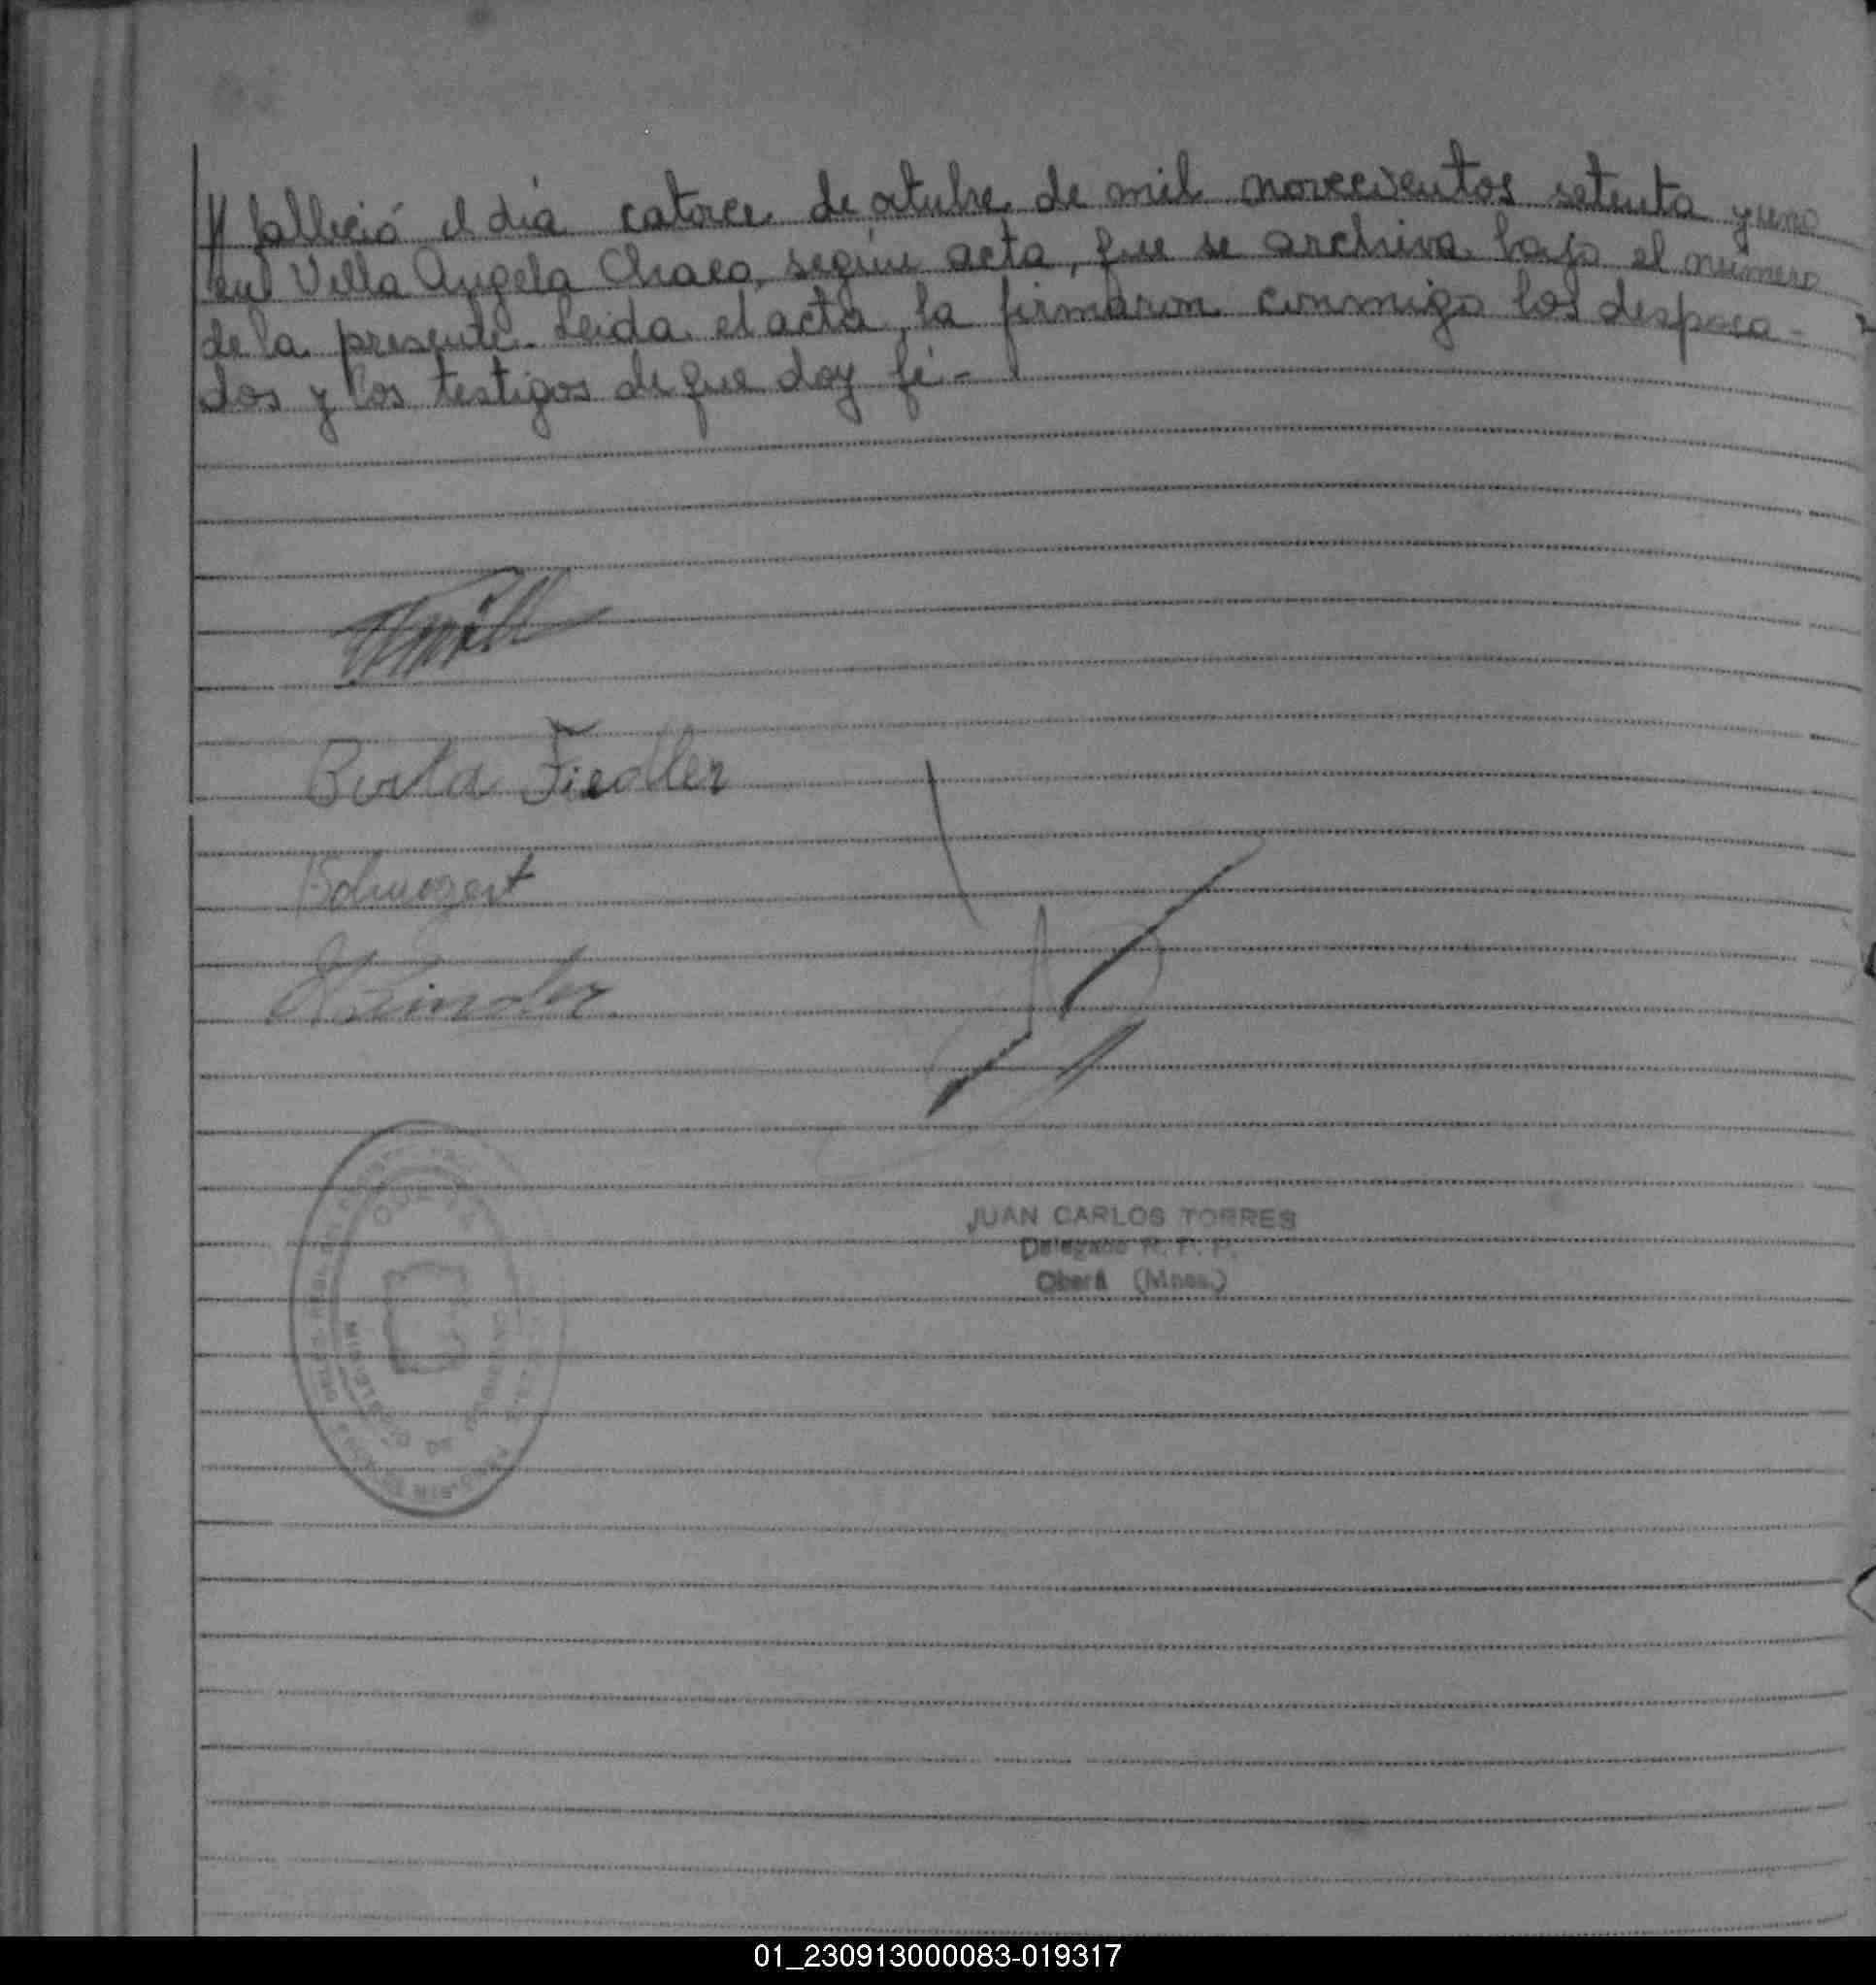 // falleció el día catorce de octubre de mil novecientos setenta y uno
en Villa Angela Chaco, según acta, que se archiva bajo el número
de la presente. Leida el acta, la firmaron conmigo los desposa-
dos y los testigos de que doy fé.-
Berta Fiedler
JUAN CARLOS TORRES
Delegado R. P. P.
Oberá (Mnes.)
01_230913000083-019317